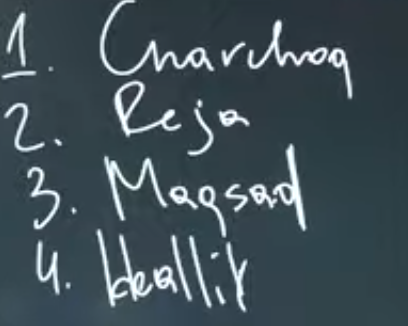 1. Charchoq
2. Reja
3. Maqsad
4. Ideallik